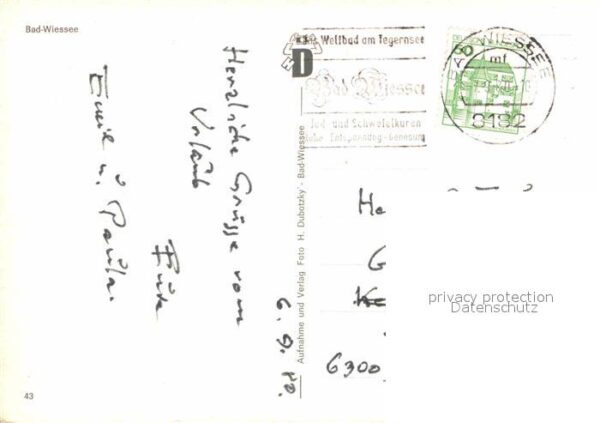 Bad-Wiessee
Das Weltbad am Tegernsee
Bad Wiessee
Jod- und Schwefelkuren
Entspannung - Genesung
BAD WIESSEE
8182
80
D
Herzliche Grüsse vom
Urlaub
Emil u. Paula.
6. 9. 80.
Aufnahme und Verlag Foto H. Dubotzky - Bad-Wiessee
He
G
6300
privacy protection
Datenschutz
43